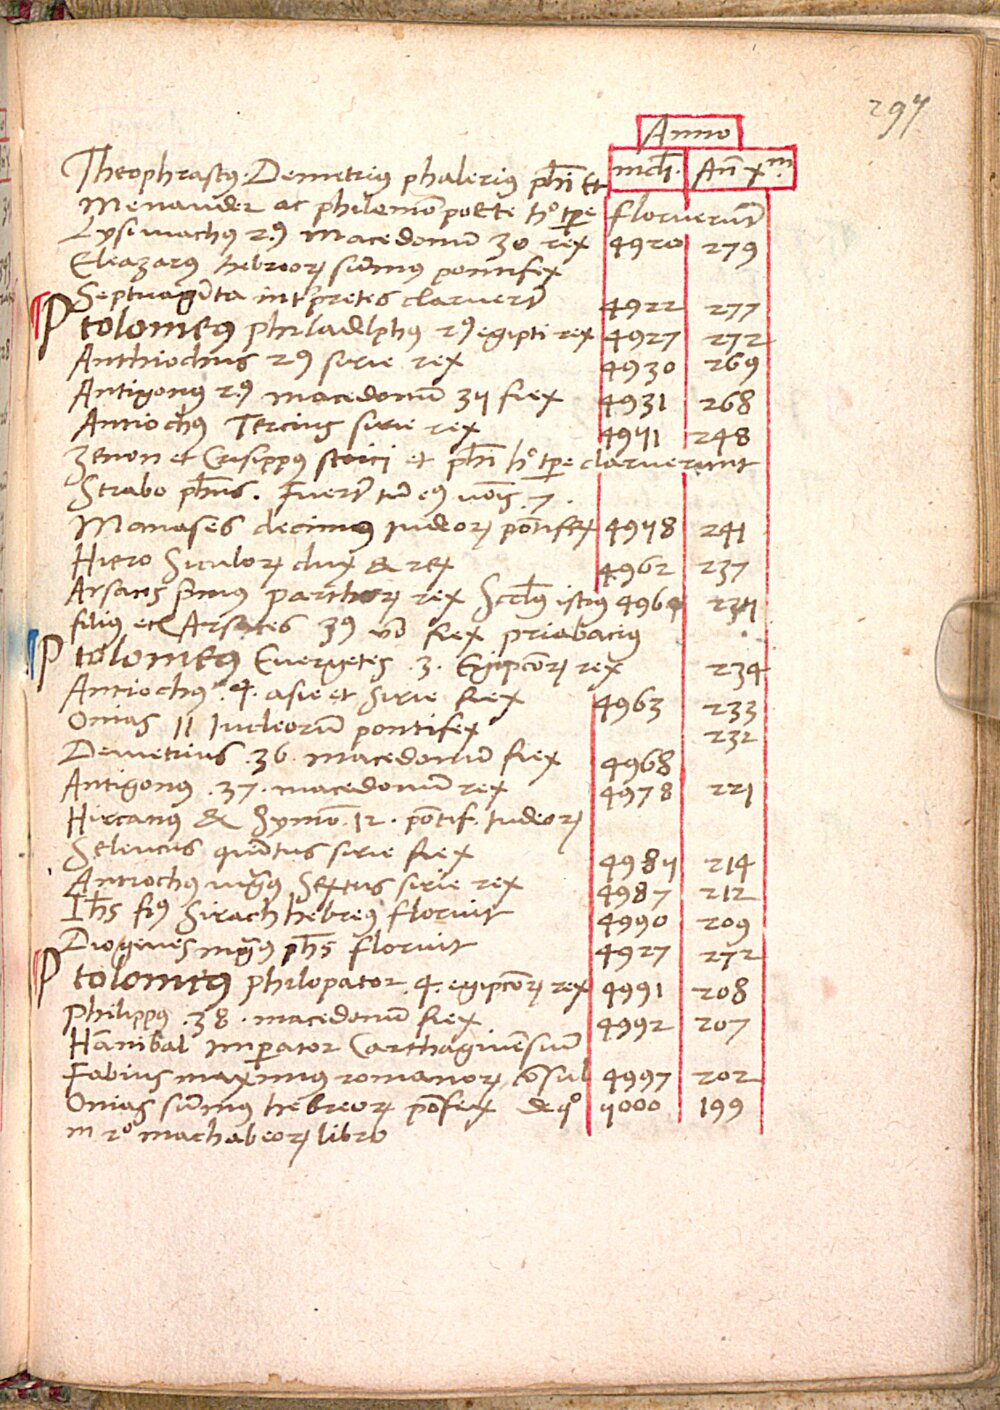 297
Anno
mūdi. An̄ xᵐ.
Theophrastus. Demetrius phalerius ph̄i Et
Menander ac philemō poete h° tp̄e floruerūt
Lysimachus 2⁹ macedonū 30 rex 4920 279
Eleazarus hebreoꝝ sūmus pontifex
Septuagīta int̄pretes claruerūt 4922 277
Ptolomeus philadelphus 2⁹ egipti rex 4927 272
Anthiochus 2⁹ sirie rex 4930 269
Antigonus 2⁹ macedonū 35 Rex 4931 268
Antiochus Tercius sirie rex 4951 248
Zenon et Crisippus stoici et ph̄i h° tp̄e claruerunt
Strabo ph̄us. Fuerūt tn̄ eius nōis .7.
Manases decimus iudeoꝝ pōtifex 4958 241
Hiero Siculoꝝ dux & rex 4962 237
Arsaces p̄mus parthoꝝ rex Scd̄us istius 4964 235
filius et Arsaces 3⁹ v̄o Rex priabacius
Ptolomeus Euergetes .3. Egipcōꝝ rex 234
Antiochus .4. asie et Sirie Rex 4963 233
Onias 11 Iudeorū pontifex 232
Demetrius .36. macedonū Rex 4968
Antigonus .37. macedonū rex 4978 221
Hircanus & Symō .12. pōtif. Iudeoꝝ
Seleucus quītus sirie Rex 4985 214
Antiochus mgn̄us Sextus sirie rex 4987 212
Ih̄s fi⁹ Sirach hebreus floruit 4990 209
Diogenes mgn̄us ph̄s floruit 4927 272
Ptolomeus philopator .4. egipcōꝝ rex 4991 208
Philippus .38. macedonū Rex 4992 207
Hānibal Imꝑator Carthaginēsiū
Fabius maximus romanoꝝ cōsul 4997 202
Onias sūmus hebreoꝝ pōfex de q° 5000 199
in 2° machabeoꝝ libro